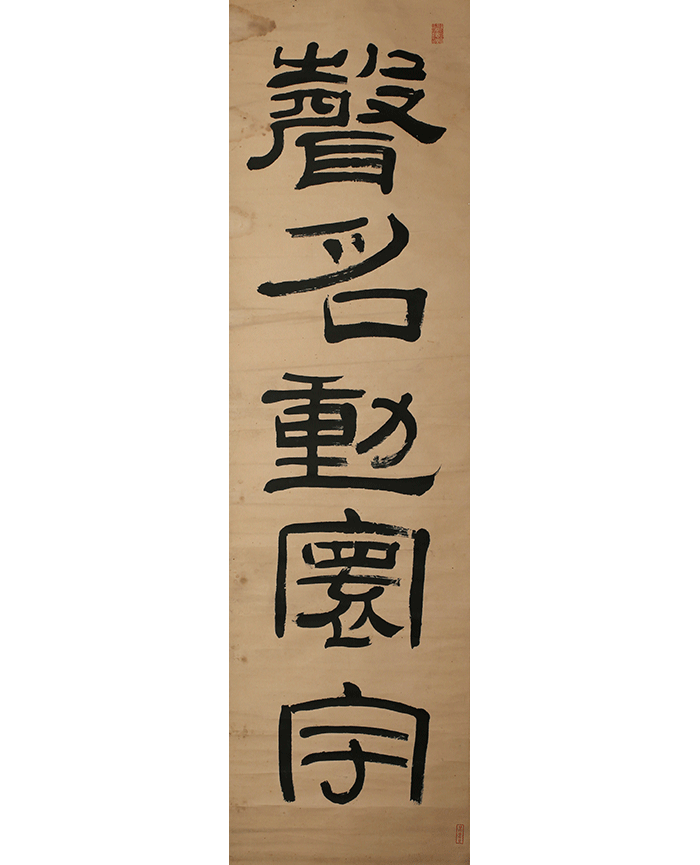 聲名動寰宇